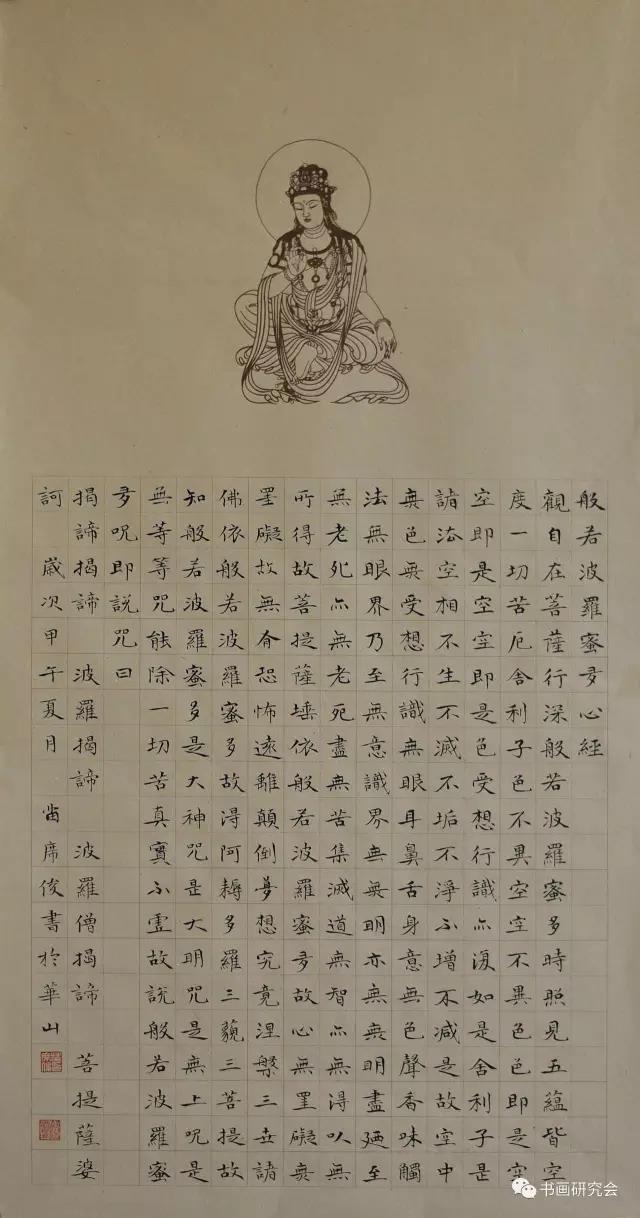 般若波羅蜜多心經
觀自在菩薩行深般若波羅蜜多時照見五蘊皆空
度一切苦厄舍利子色不異空空不異色色即是空
空即是空空即是色受想行識亦復如是舍利子是
諸法空相不生不滅不垢不淨不增不減是故空中
無色無受想行識無眼耳鼻舌身意無色聲香味觸
法無眼界乃至無意識界無無明亦無無明盡廼至
無老死亦無老死盡無苦集滅道無智亦無得以無
所得故菩提薩埵依般若波羅蜜多故心無罣礙無
罣礙故無有恐怖遠離顛倒夢想究竟涅槃三世諸
佛依般若波羅蜜多故得阿耨多羅三藐三菩提故
知般若波羅蜜多是大神咒是大明咒是無上呪是
無等等咒能除一切苦真實不虛故說般若波羅蜜
多呪即說咒曰
揭諦揭諦 波羅揭諦 波羅僧揭諦 菩提薩婆
訶 歲次甲午夏月 席俊書於華山
书画研究会